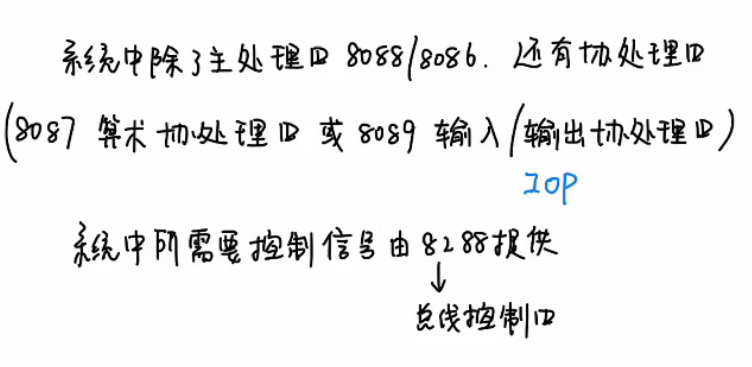 系统中除了主处理口 8088/8086. 还有协处理口
(8087 算术协处理口 或 8089 输入/输出协处理口)
IOP
系统中所需要控制信号由8288提供
↓
总线控制口